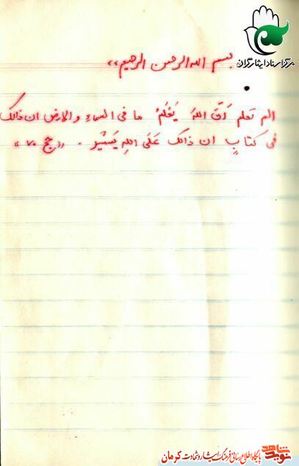 مرکز اسناد ایثارگران
بسم الله الرحمن الرحیم ,,
الم تعلم اَنَّ اللهَ یَعْلَمُ ما فی السماءِ والارض ان ذالک
فی کتابٍ ان ذالک عَلَی اللهِ یَسیر . «حج ۷۰»
نوید شاهد
پایگاه اطلاع رسانی فرهنگ ایثار و شهادت کرمان